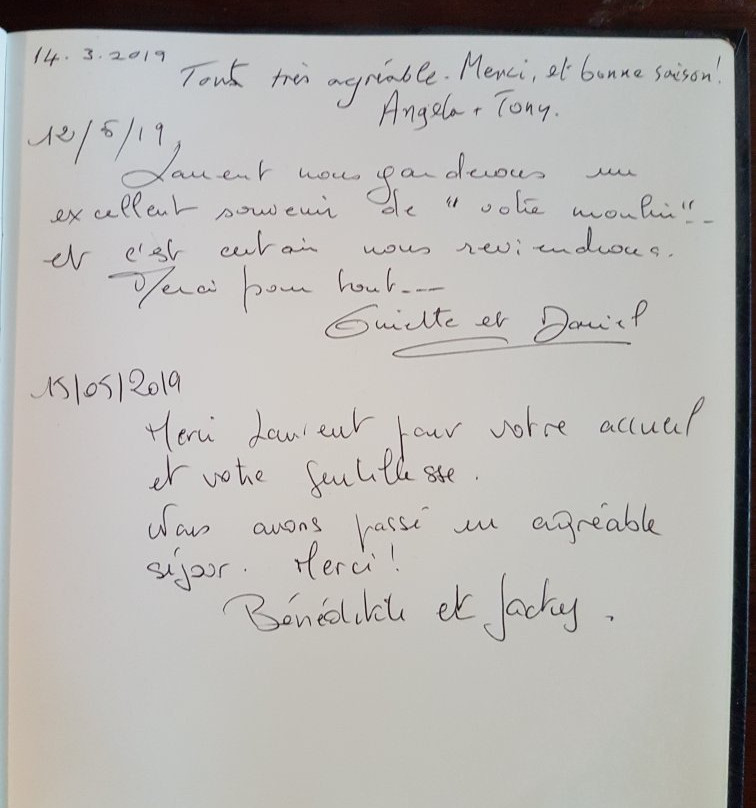 14. 3. 2019
Tout très agréable. Merci, et bonne saison!
Angela + Tony.
12/5/19,
Laurent nous garderons un
excellent souvenir de "votre moulin"--
et c'est certain nous reviendrons.
Merci pour tout---
Guiette et Daniel
15/05/2019
Merci Laurent pour votre accueil
et votre gentillesse.
Nous avons passé un agréable
séjour. Merci!
Bénédikte et Jacky.